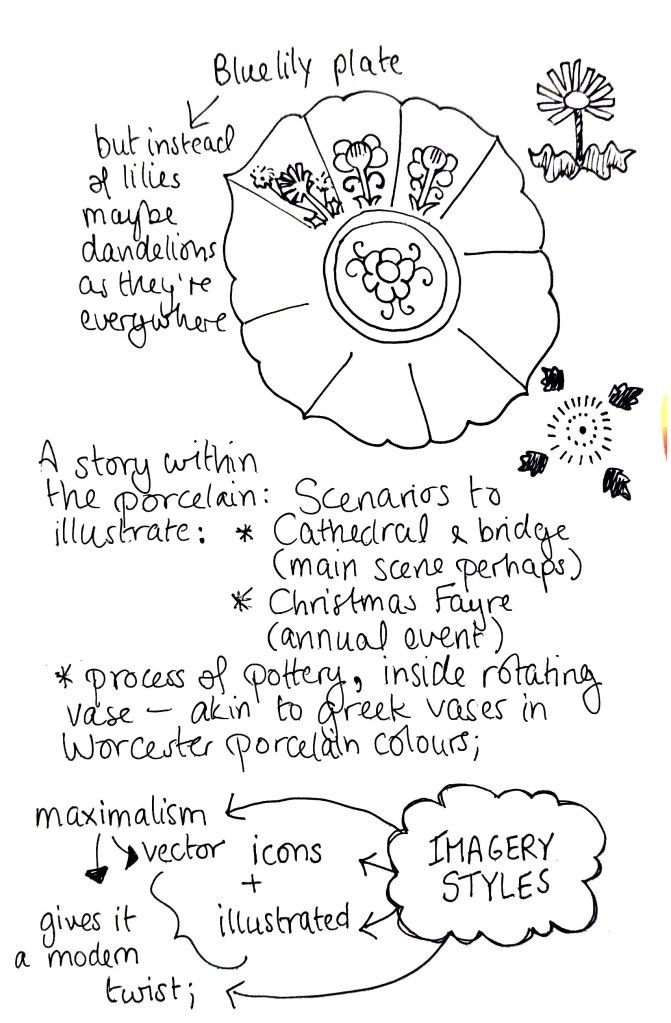 Bluelily plate
but instead
of lilies
maybe
dandelions
as they're
everywhere
A story within
the porcelain: Scenarios to
illustrate: * Cathedral & bridge
(main scene perhaps)
* Christmas Fayre
(annual event)
* process of pottery, inside rotating
vase – akin to greek vases in
Worcester porcelain colours;
maximalism
vector icons
+
illustrated
gives it
a modern
twist;
IMAGERY
STYLES